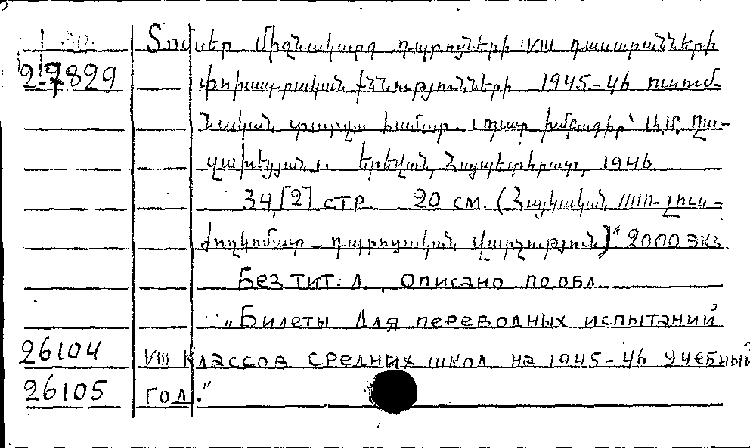 2-7829
Տոմսեր միջնակարգ դպրոցների VIII դասարանների
փոխադրական քննությունների 1945-46 ուսում-
նական տարվա համար. Պատ. խմբագիր՝
Երևան, Հայպետհրատ, 1946
34,[2] стр. 20 см. (Հայկական ՍՍՌ լուս-
ժողկոմատ - դպրոցական վարչություն) 2000 экз.
Без тит. л. Описано по обл.
"Билеты для переводных испытаний
26104 VIII классов средних школ на 1945-46 учебный
26105 год."